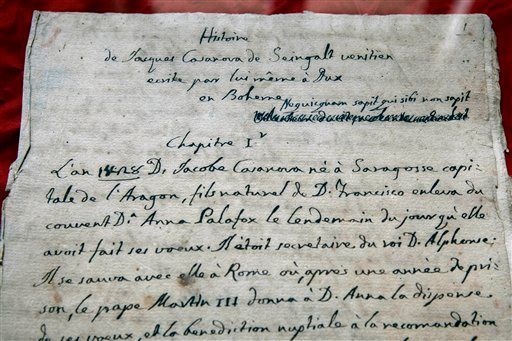 1
Histoire
de Jacques Casanova de Seingalt venitien
ecrite par lui même à Dux
en Boheme
Nequicquam sapit qui sibi non sapit
Chapitre I.r
L'an 1428 D. Jacobe Casanova né à Saragosse capi-
tale de l'Aragon, fils naturel de D. Francisco enleva du
couvent D.a Anna Palafox le lendemain du jour qu'elle
avoit fait ses voeux. Il étoit secretaire du roi D. Alphonse.
Il se sauva avec elle à Rome où, apres une année de pri-
son, le pape Martin III donna à D. Anna la dispense
de ses voeux, et la benediction nuptiale à la recomandation